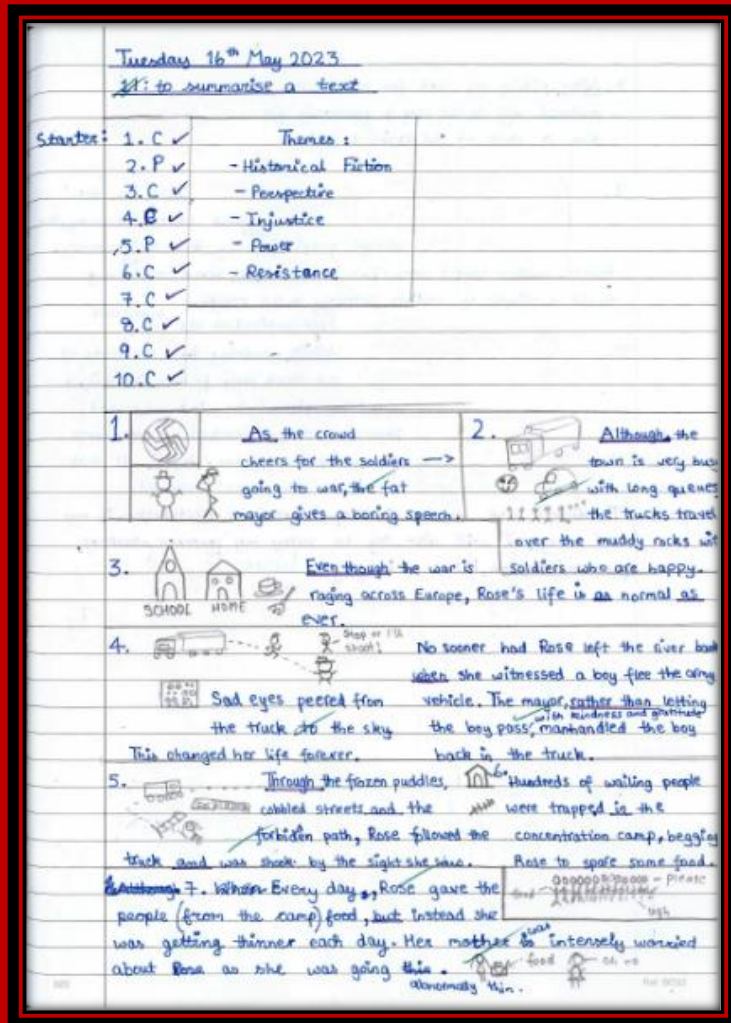 Tuesday 16th May 2023
LI: to summarise a text
Starter: 1. C ✓
2. P ✓
3. C ✓
4. C ✓
5. P ✓
6. C ✓
7. C ✓
8. C ✓
9. C ✓
10. C ✓
Themes:
- Historical Fiction
- Perspective
- Injustice
- Power
- Resistance
1. As the crowd
cheers for the soldiers →
going to war, the fat
mayor gives a boring speech.
2. Although, the
town is very bus
with long queues
the trucks travel
over the muddy rocks wit
soldiers who are happy.
3. SCHOOL HOME
Even though the war is
raging across Europe, Rose's life is as normal as
ever.
4. Stop or I'll
shoot!
No sooner had Rose left the river bank
when she witnessed a boy flee the army
vehicle. The mayor, rather than letting
the boy pass, with kindness and gratitude manhandled the boy
back in the truck.
Sad eyes peered from
the truck to the sky
This changed her life forever.
5. Through the frozen puddles,
cobbled streets and the
forbiden path, Rose followed the
truck and was shook by the sight she saw.
6. Hundreds of wailing people
were trapped in the
concentration camp, begging
Rose to spare some food.
- please
7. When Every day, Rose gave the
people (from the camp) food, but instead she
was getting thinner each day. Her mother was intensely worried
about Rose as she was going thin.
abnormally thin.
food
oh no